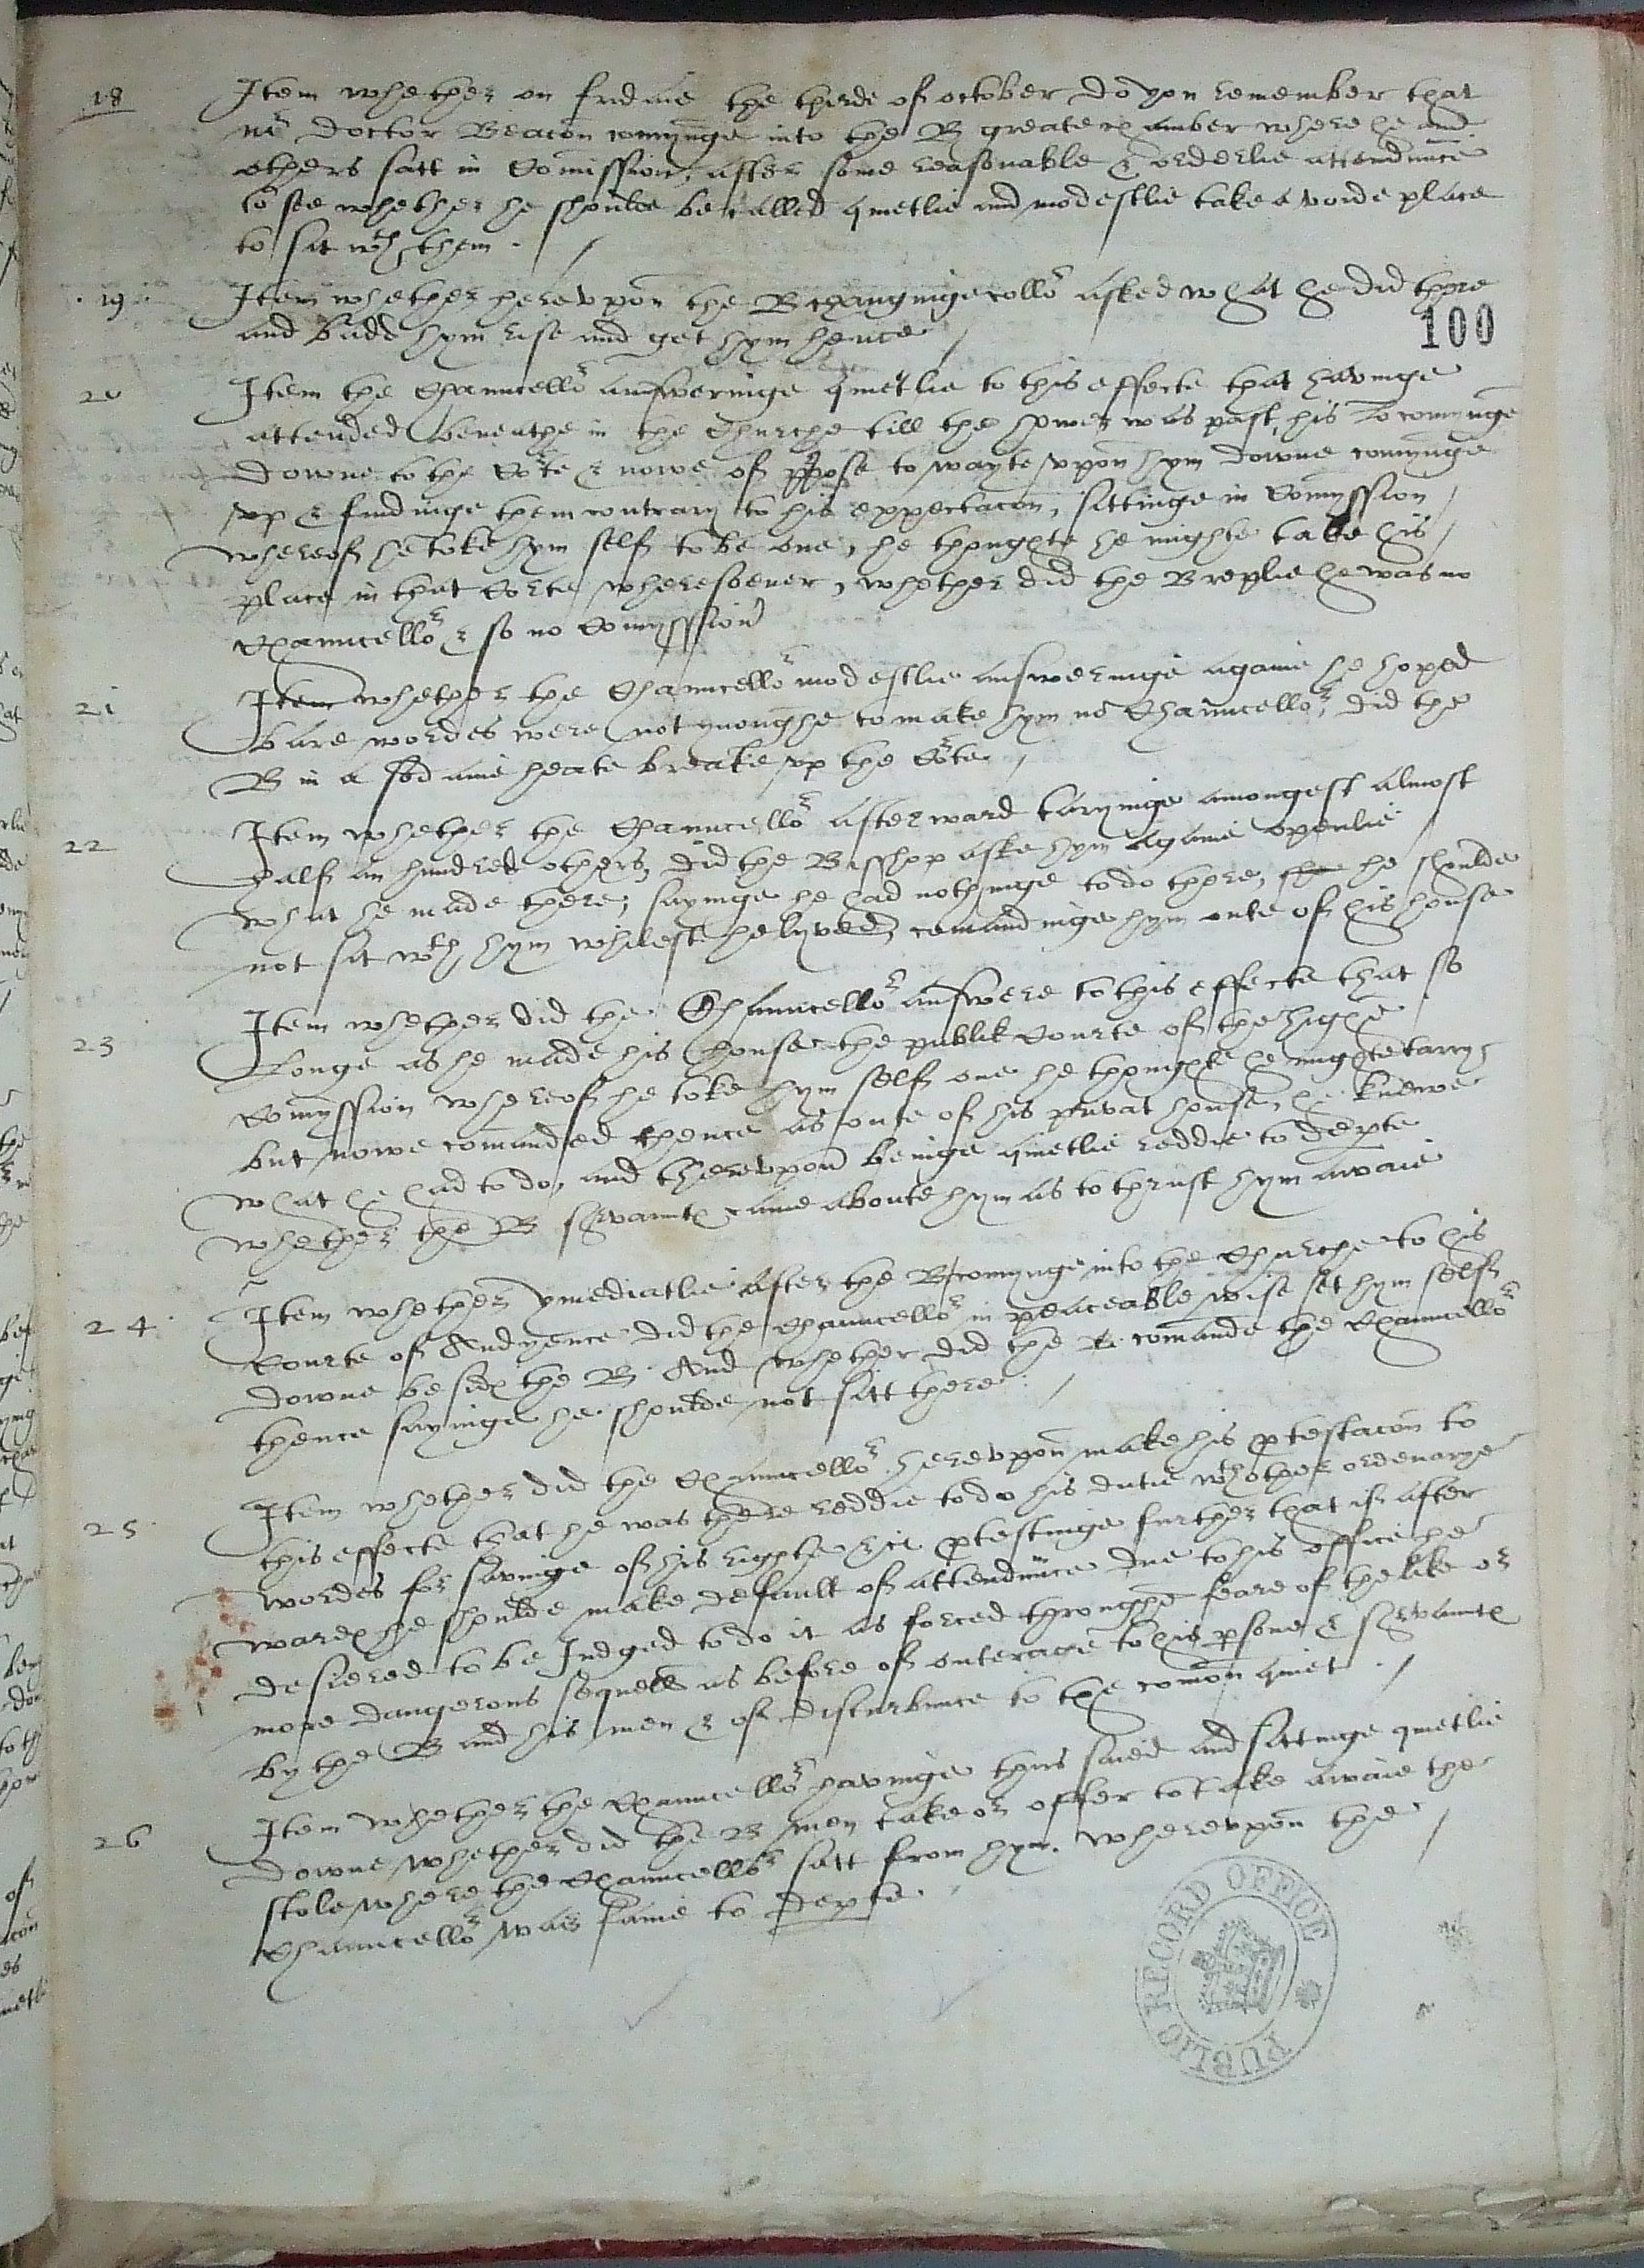 18 Item whether on fridaie the thirde of october do yow remember that
mr doctor Beacon comynge into the B greate chamber where he and
others satt in Comission, after some reasonable & orderlie attendance
to see whether he shoulde be called quietlie and modestlie take a voide place
to sit wth them.
19 Item whether herevpon the B chaunginge collor asked what he did there
and badd hym rise and get hym hence
100
20 Item the Chauncellor answeringe quietlie to this effecte that havinge
attended beneathe in the Churche till the hower was past, his Lo comynge
downe to the Corte & nowe of purpose to wayte vppon hym downe comynge
vp & findinge them contrary to his expectacon, sittinge in Comyssion
whereof he toke hym self to be one, he thoughte he mighte take his
place in that Corte wheresoever, whether did the B replie he was no
Chauncellor & so no Comyssion
21 Item whether the Chauncellor modestlie answeringe againe he hoped
bare wordes were not ynoughe to make hym no Chauncellor, did the
B in a sodaine heate breake vp the Corte
22 Item whether the Chauncellor afterward taryinge amongest almost
half an hundred others, did the Bisshop aske hym againe openlie
what he made there, sayinge he had nothinge to do there, he shoulde
not sit wth hym whilest he lyved, comaundinge hym oute of his house
23 Item whether did the Chauncellor answere to this effecte that so
longe as he made his house the publik Courte of the highe
Comyssion whereof he toke hym self one he thoughte he mighte tarry
but nowe comanded thence as oute of his privat house, he knewe
what he had to do, and therevpon beinge quietlie reddie to departe
whether the B servauntes came aboute hym as to thrust hym awaie
24 Item whether ymediatlie after the B comynge into the Churche to his
Courte of Audyence did the Chauncellor in peaceable wise sit hym self
downe beside the B. And whether did the B. comande the Chauncellor
thence sayinge he shoulde not sitt there
25 Item whether did the Chauncellor herevpon make his protestacon to
this effecte that he was there reddie to do his dutie wth other ordenarye
wordes for savinge of his righte in it protestinge further that if after
wardes he shoulde make default of attendance due to his office he
desiered to be Judged to do it as forced throughe feare of the like or
more dangerous sequell as before of outerage to his persone & servauntes
by the B and his men & of disturbance to the comon quiet
26 Item whether the Chauncellor havinge thus saied and sittinge quietlie
downe whether did the B men take or offer to take awaie the
stole where the Chauncellor satt from hym. wherevpon the
Chauncellor was faine to departe.
PUBLIC RECORD OFFICE